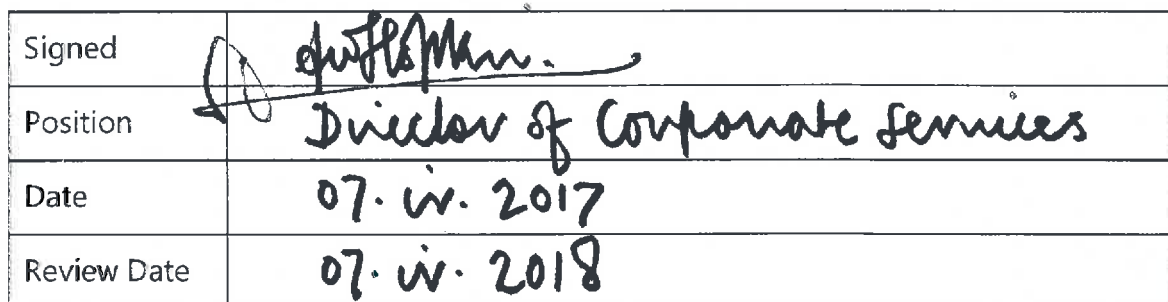 Signed
Position Director of Corporate Services
Date 07. iv. 2017
Review Date 07. iv. 2018